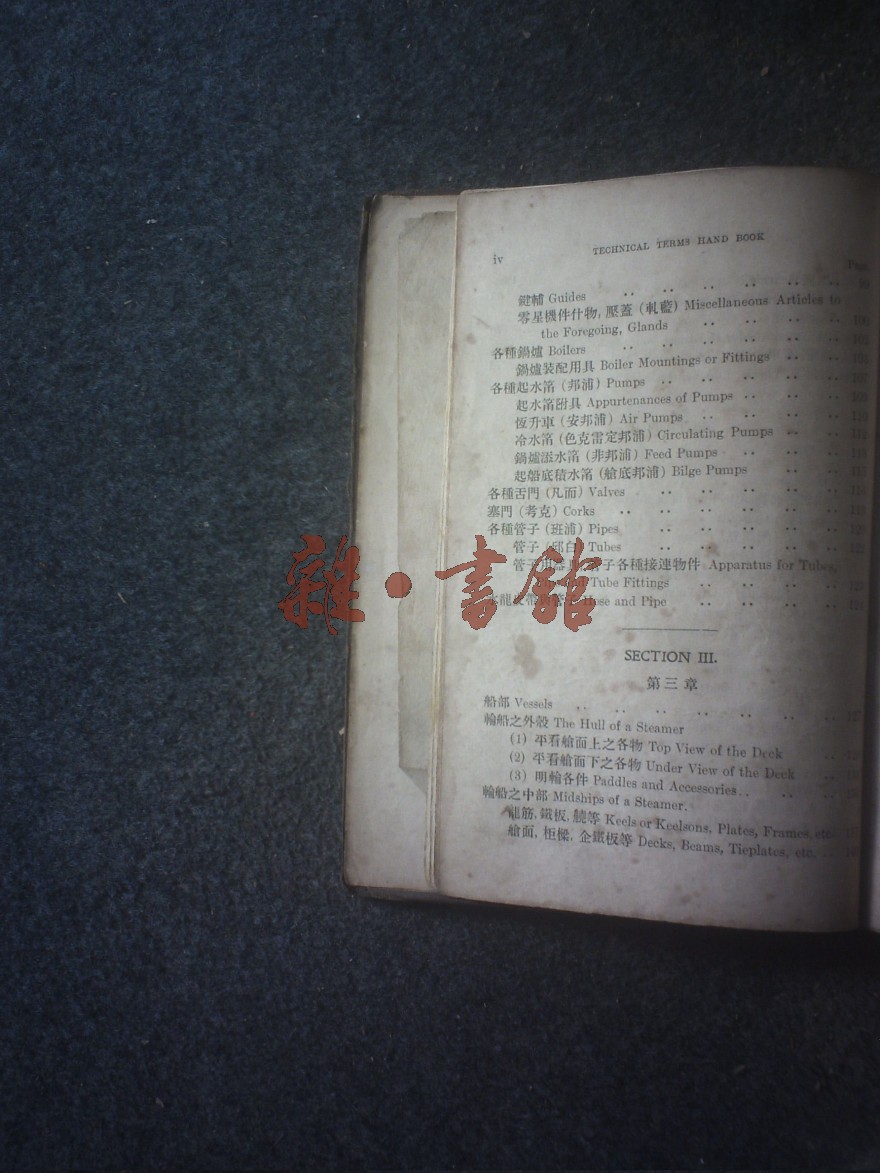 iv
TECHNICAL TERMS HAND BOOK
Page
鍵輔 Guides
零星機件什物, 壓蓋 (軋藍) Miscellaneous Articles to
the Foregoing, Glands
各種鍋爐 Boilers
鍋爐裝配用具 Boiler Mountings or Fittings
各種起水筩 (邦浦) Pumps
起水筩附具 Appurtenances of Pumps
恆升車 (安邦浦) Air Pumps
冷水筩 (色克雷定邦浦) Circulating Pumps
鍋爐添水筩 (非邦浦) Feed Pumps
起船底積水筩 (艙底邦浦) Bilge Pumps
各種舌門 (凡而) Valves
塞門 (考克) Corks
各種管子 (班浦) Pipes
管子 Tubes
子各種接連物件 Apparatus for Tubes,
Tube Fittings
Hose and Pipe
雜·書館
SECTION III.
第三章
船部 Vessels
輪船之外殼 The Hull of a Steamer
(1) 平看艙面上之各物 Top View of the Deck
(2) 平看艙面下之各物 Under View of the Deck
(3) 明輪各件 Paddles and Accessories
輪船之中部 Midships of a Steamer.
龍筋, 鐵板, 等 Keels or Keelsons, Plates, Frames, etc.
艙面, 樑, 企鐵板等 Decks, Beams, Tieplates, etc.